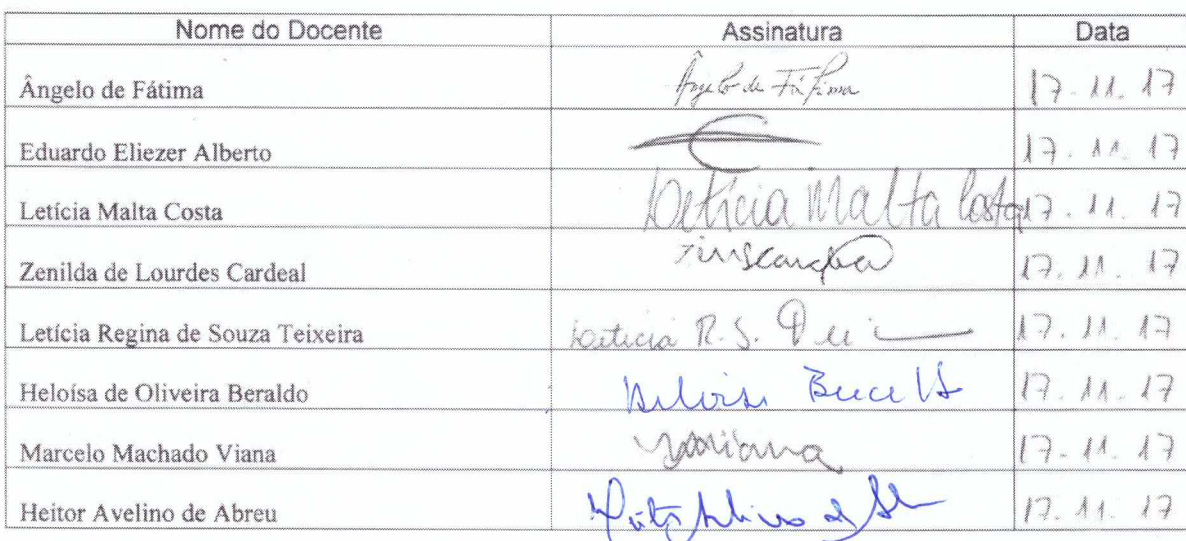 Nome do Docente Assinatura Data
Ângelo de Fátima Ângelo de Fátima 17.11.17
Eduardo Eliezer Alberto 17.11.17
Letícia Malta Costa Letícia Malta Costa 17.11.17
Zenilda de Lourdes Cardeal 17.11.17
Letícia Regina de Souza Teixeira Letícia R. S. 17.11.17
Heloísa de Oliveira Beraldo 17.11.17
Marcelo Machado Viana 17.11.17
Heitor Avelino de Abreu 17.11.17